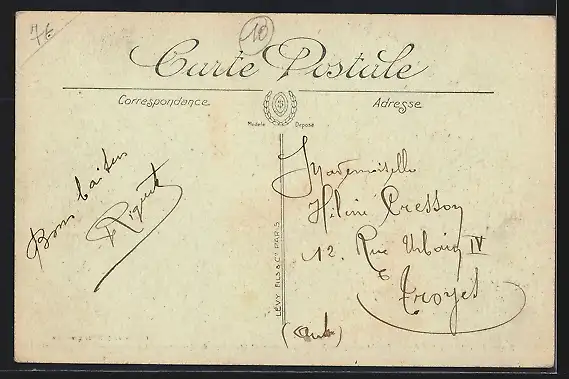 10
Carte Postale
Correspondance
Adresse
Modèle Déposé
Bons baisers
LÉVY FILS & Cie PARIS
Mademoiselle
Hélène Cresson
12. Rue Urbain IV
Troyes
(Aube)